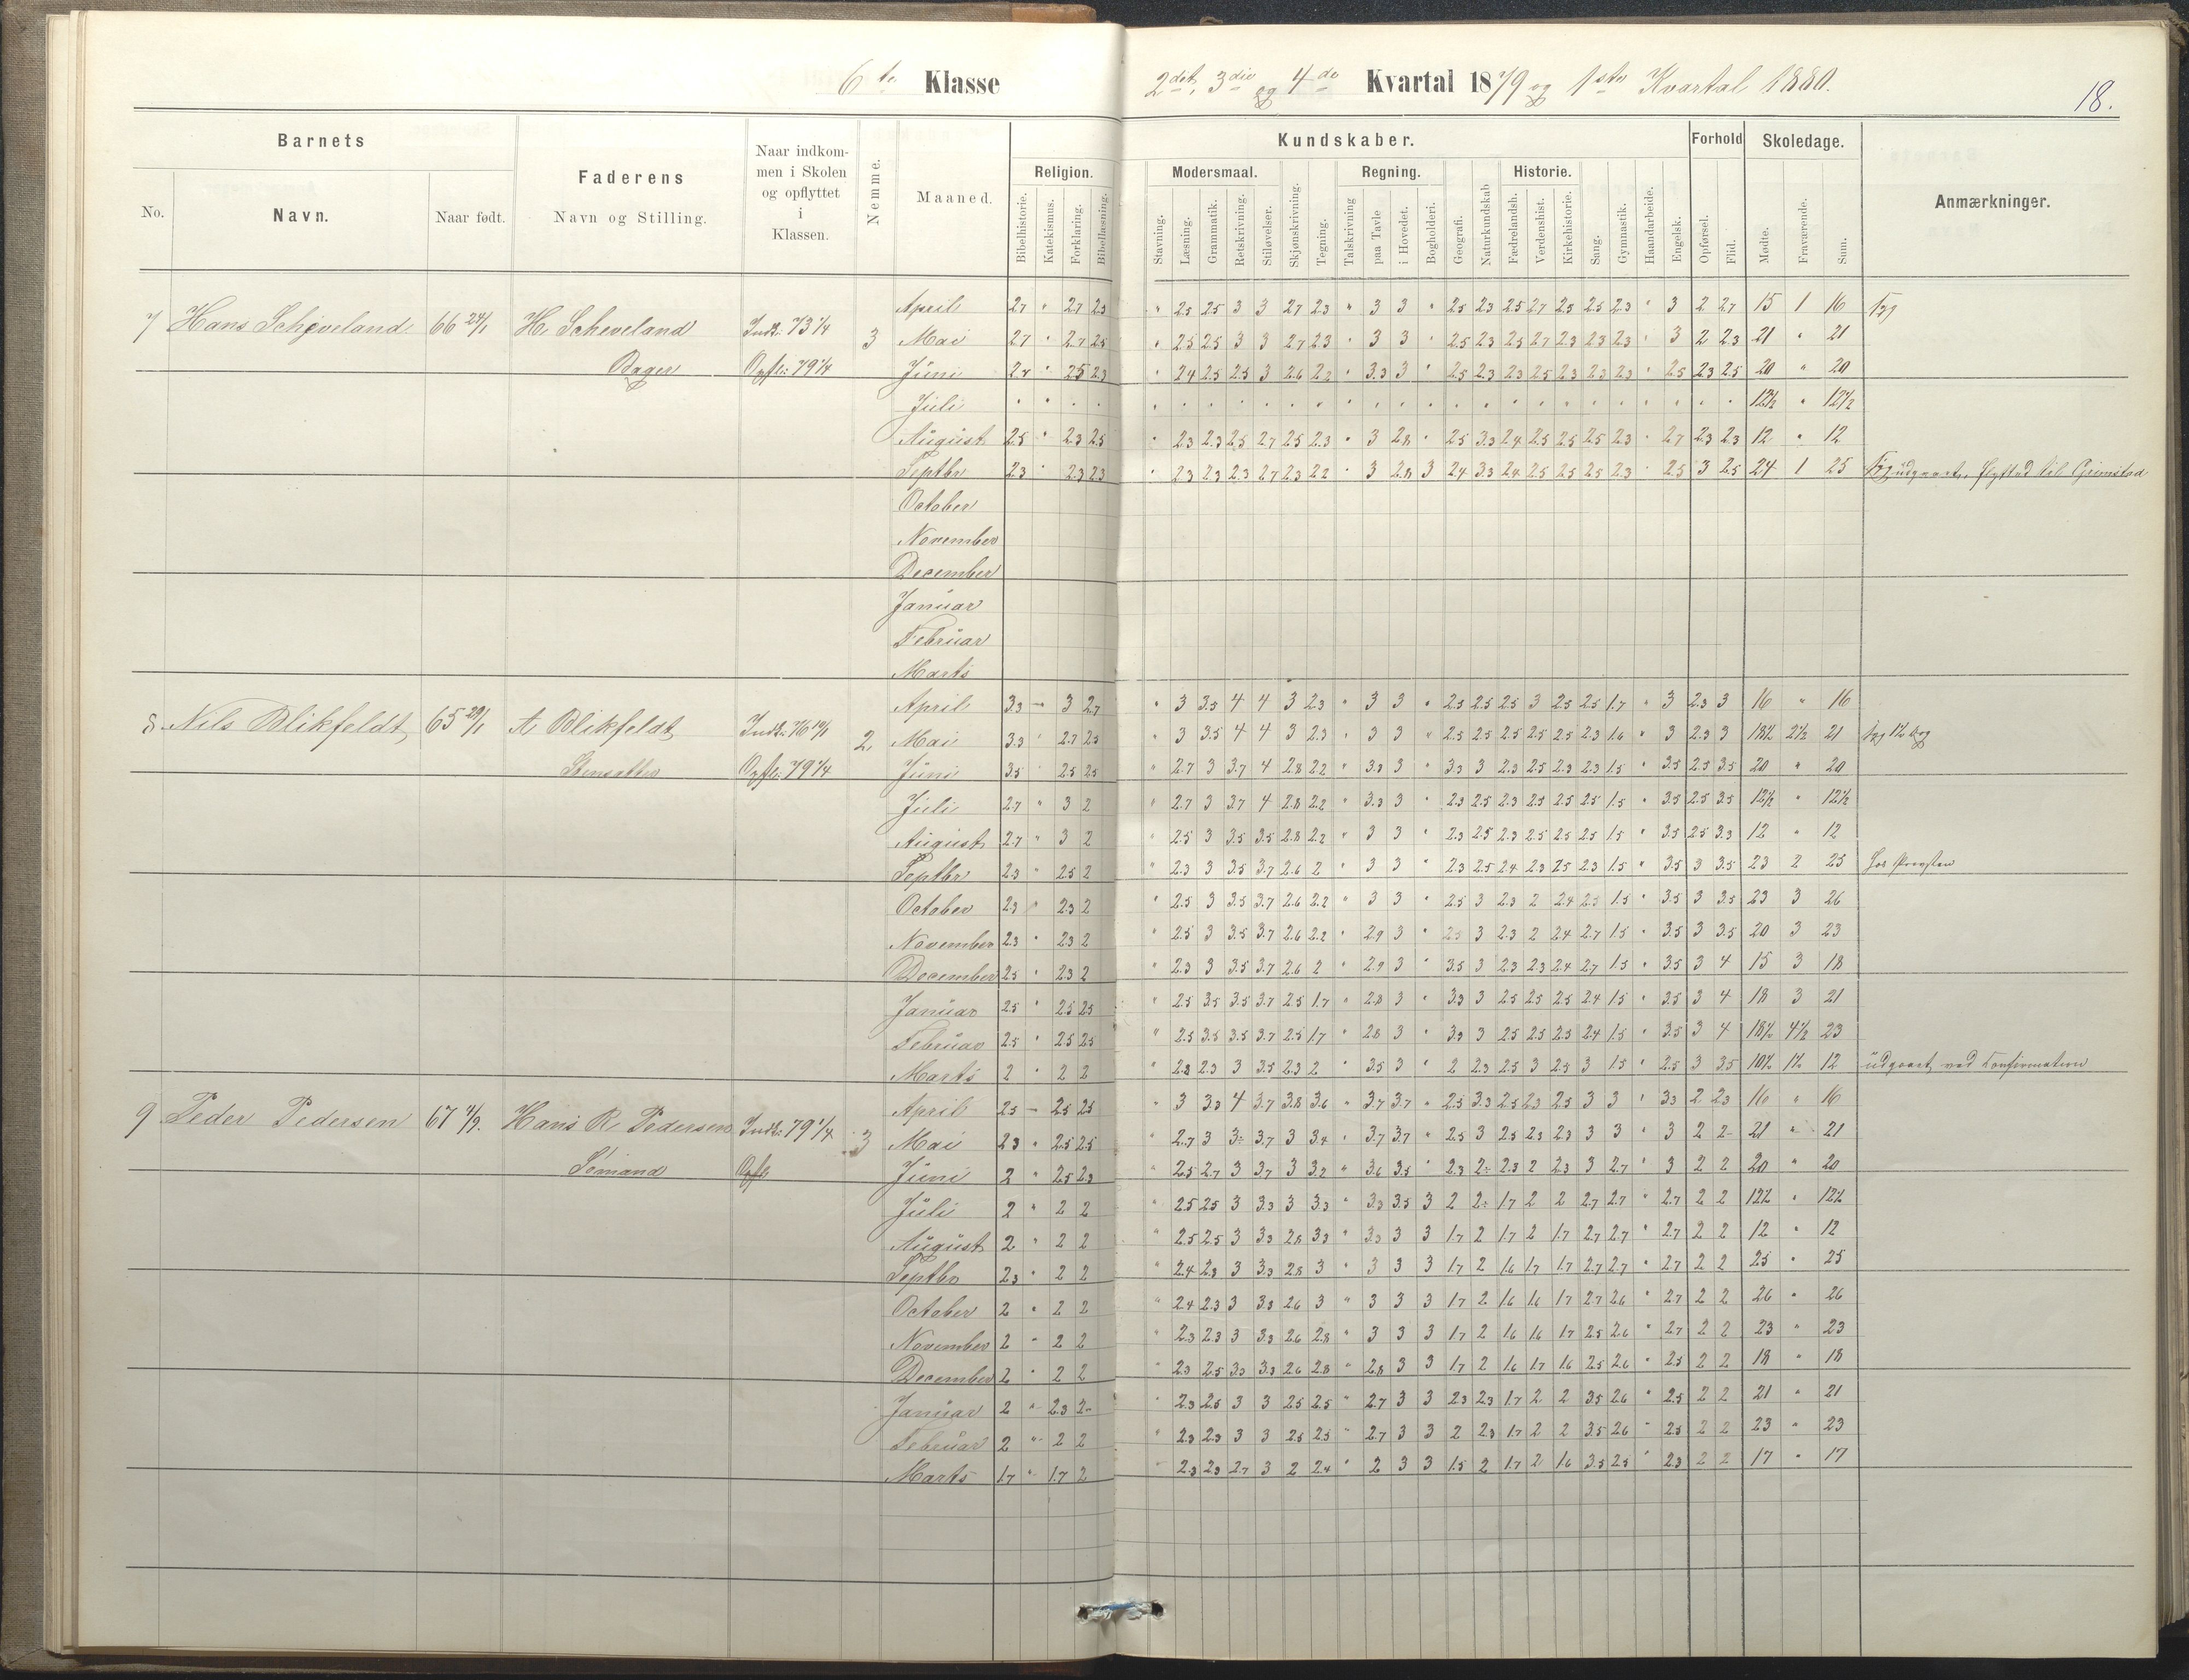 6te Klasse
2det, 3die og 4de Kvartal 1879 og 1ste Kvartal 1880.
18.
Barnets
No.
Navn.
Naar født.
Faderens
Navn og Stilling.
Naar indkom-
men i Skolen
og opflyttet
i
Klassen.
Nemme.
Maaned.
Kundskaber.
Religion.
Bibelhistorie.
Katekismus.
Forklaring.
Bibellæsning.
Modersmaal.
Stavning.
Læsning.
Grammatik.
Retskrivning.
Stiløvelser.
Skjønskrivning.
Tegning.
Regning.
Talskrivning
paa Tavle
i Hovedet.
Bogholderi.
Geografi.
Naturkundskab
Historie.
Fædrelandsh.
Verdenshist.
Kirkehistorie.
Sang.
Gymnastik.
Haandarbeide.
Engelsk.
Forhold
Opførsel.
Flid.
Skoledage.
Mødte.
Fraværende.
Sum.
Anmærkninger.
7 Hans Scheveland 66 24/1 H. Scheveland Indk: 73 1/4 3
Bager Opfl: 79 1/4
April 2.7 " 2.7 2.3 " 2.5 2.5 3 3 2.7 2.3 " 3 3 " 2.5 2.3 2.5 2.7 2.3 2.5 2.3 " 3 2 2.7 15 1 16 syg
Mai 2.7 " 2.7 2.5 " 2.5 2.5 3 3 2.7 2.3 " 3 3 " 2.5 2.3 2.5 2.7 2.3 2.3 2.3 " 3 2 2.3 21 " 21
Juni 2.7 " 2.5 2.3 " 2.4 2.5 2.5 3 2.6 2.2 " 3.3 3 " 2.5 2.3 2.3 2.5 2.3 2.3 2.3 " 2.5 2.3 2.5 20 " 20
Juli 12 1/2 " 12 1/2
August 2.5 " 2.3 2.5 " 2.3 2.3 2.5 2.7 2.5 2.3 " 3 2.8 " 2.5 3.3 2.4 2.5 2.5 2.5 2.3 " 2.7 2.3 2.3 12 " 12
Septbr 2.3 " 2.3 2.3 " 2.3 2.3 2.3 2.7 2.3 2.2 " 3 2.8 3 2.4 3.3 2.4 2.5 2.5 2.5 2.3 " 2.5 3 2.5 24 1 25 Syg udgaaet, flyttet til Grimstad
October
November
December
Januar
Februar
Marts
8 Nils Blikfeldt, 65 29/1 A. Blikfeldt, Indk: 76 10/1 2
Opfl: 79 1/4
April 3.3 — 3 2.7 " 3 3.5 4 4 3 2.3 " 3 3 " 2.5 2.5 2.5 3 2.5 2.5 1.7 " 3 2.3 3 16 " 16
Mai 3.3 " 2.7 2.5 " 3 3.5 4 4 3 2.3 " 3 3 " 2.5 2.5 2.5 2.5 2.5 2.3 1.6 " 3 2.3 3 18 1/2 2 1/2 21 syg 1 1/2 Dag
Juni 3.5 " 2.5 2.5 " 2.7 3 3.7 4 2.8 2.2 " 3.3 3 " 3.3 3 2.3 2.5 2.3 2.3 1.5 " 3.5 2.5 3.5 20 " 20
Juli 2.7 " 3 2 " 2.7 3 3.7 4 2.8 2.2 " 3.3 3 " 2.3 2.5 2.3 2.5 2.5 2.5 1.5 " 3.5 2.5 3.5 12 1/2 " 12 1/2
August 2.7 " 3 2 " 2.5 3 3.5 3.5 2.8 2.2 " 3 3 " 2.3 2.5 2.3 2.5 2.5 2.5 1.5 " 3.5 2.5 3.3 12 " 12
Septbr 2.3 " 2.5 2 " 2.3 3 3.5 3.7 2.6 2 " 3 3 " 2.3 2.5 2.4 2.3 2.5 2.3 1.5 " 3.5 3 3.5 23 2 25 hos Provsten
October 2.3 " 2.3 2 " 2.5 3 3.5 3.7 2.6 2.2 " 3 3 " 2.5 3 2.3 2 2.4 2.5 1.5 " 3.5 3 3.5 23 3 26
November 2.3 " 2.3 2 " 2.5 3 3.5 3.7 2.6 2.2 " 2.9 3 " 2.5 3 2.3 2 2.4 2.7 1.5 " 3.5 3 3.5 20 3 23
December 2.5 " 2.3 2 " 2.3 3 3.5 3.7 2.6 2 " 2.9 3 " 3.5 3 2.3 2.3 2.4 2.7 1.5 " 3.5 3 4 15 3 18
Januar 2.5 " 2.5 2.5 " 2.5 3.5 3.5 3.7 2.5 1.7 " 2.8 3 " 3.3 3 2.5 2.5 2.5 2.4 1.5 " 3.5 3 4 18 3 21
Februar 2.5 " 2.5 2.5 " 2.5 3.5 3.5 3.7 2.5 1.7 " 2.8 3 " 3.3 3 2.5 2.5 2.5 2.4 1.5 " 3.5 3 4 18 1/2 4 1/2 23
Marts 2 " 2 2 " 2.8 2.3 3 3.5 2.3 2 " 3.5 3 " 2 2.3 2.5 3 2.5 3 1.5 " 2.5 3 3.5 10 1/2 1 1/2 12 udgaaet ved Konfirmation
9 Peder Pedersen 67 4/9. Hans R. Pedersen Indk: 79 1/4 3
Sømand Opfl
April 2.5 — 2.5 2.5 " 3 3.3 4 3.7 3.8 3.6 " 3.7 3.7 " 2.5 3.3 2.5 2.3 2.5 3 3 " 3.3 2 2.3 16 " 16
Mai 2.3 " 2.5 2.5 " 2.7 3 3÷ 3.7 3 3.4 " 3.7 3.7 " 2.5 3 2.5 2.3 2.3 3 3 " 3 2 2 21 " 21
Juni 2 " 2.5 2.3 " 2.5 2.7 3 3.7 3 3.2 " 3.6 3.5 " 2.3 2÷ 2.3 2 2.3 3 2.7 " 3 2 2 20 " 20
Juli 2 " 2 2 " 2.5 2.5 3 3.3 3 3.3 " 3.3 3.5 3 2 2÷ 1.7 2 2 2.7 2.7 " 2.7 2 2 12 1/2 " 12 1/2
August 2 " 2 2 " 2.5 2.5 3 3.3 2.8 3.3 " 3.3 3 3 1.7 2 1.7 2 1.7 2.7 2.7 " 2.7 2 2 12 " 12
Septbr 2.3 " 2 2 " 2.4 2.3 3 3.3 2.8 3 " 3 3 3 1.7 2 1.6 1.7 1.7 2.7 2.7 " 2.7 2 2 25 " 25
October 2 " 2 2 " 2.4 2.3 3 3.3 2.6 3 " 3 3 3 1.7 2 1.6 1.6 1.7 2.7 2.6 " 2.7 2 2 26 " 26
November 2 " 2 2 " 2.3 2.3 3 3.3 2.6 2.8 " 3 3 3 1.7 2 1.6 1.6 1.7 2.5 2.6 " 2.7 2 2 23 " 23
December 2 " 2 2 " 2.3 2.5 3.3 3.3 2.6 2.8 " 2.8 3 3 1.7 2 1.6 1.7 1.6 2.5 2.6 " 2.5 2 2 18 " 18
Januar 2 " 2.3 2 " 2.3 2.5 3 3 2.5 2.5 " 2.7 3 3 2.3 2.3 1.7 2 2 3.5 2.6 " 2.5 2 2 21 " 21
Februar 2 " 2 2 " 2.3 2.3 3 3 2.5 2.5 " 2.7 3 3 2 2.3 1.7 2 2 3.5 2.6 " 2.5 2 2 23 " 23
Marts 1.7 " 1.7 2 " 2.3 2.3 2.7 3 2 2.4 " 2 3 3 1.5 2 1.7 2 1.6 3.5 2.5 " 2.3 2 2 17 " 17